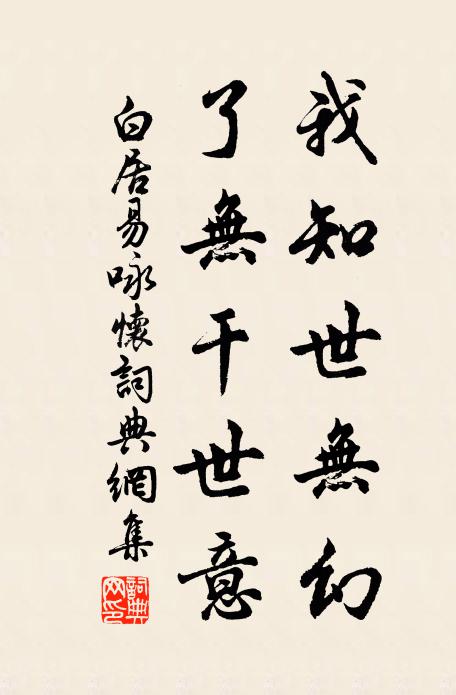 我知世無幻
了無干世意
白居易咏懷詞典網集
詞典网印